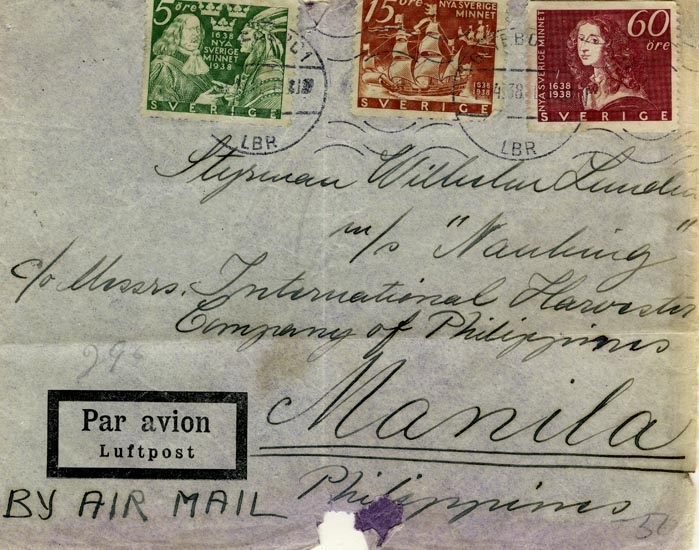 5 öre
1638
NYA
SVERIGE
MINNET
1938
SVERIGE
15 öre
NYA SVERIGE
MINNET
1638
1938
SVERIGE
60
öre
NYA SVERIGE MINNET
1638
1938
SVERIGE
LBR
LBR
Styrman Wilhelm
m/s "Nanking"
c/o Messrs. International Harvester
Company of Philippines
296
Manila
Philippines
Par avion
Luftpost
BY AIR MAIL